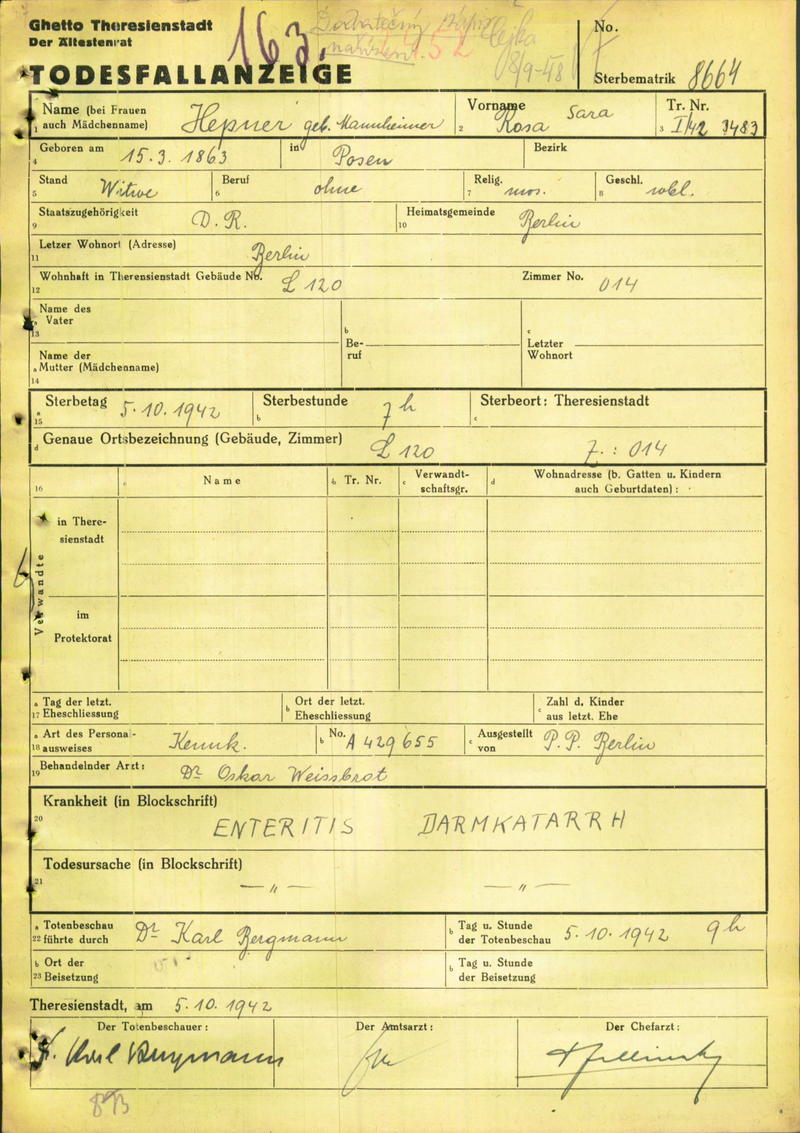 Ghetto Theresienstadt
Der Ältestenrat
163.
8/9-48
No.
TODESFALLANZEIGE
Sterbematrik 8664
Name (bei Frauen
1 auch Mädchenname)
Hepner geb. Mannheimer
Vorname
2
Rosa Sara
Tr. Nr.
3 I/42 3483
Geboren am
4
15. 3. 1863
in Posen
Bezirk
Stand
5
Witwe
Beruf
6
ohne
Relig.
7
mos.
Geschl.
8
wbl.
Staatszugehörigkeit
9
D. R.
Heimatsgemeinde
10
Berlin
Letzer Wohnort (Adresse)
11
Berlin
Wohnhaft in Therensienstadt Gebäude No.
12
L 120
Zimmer No. 014
Name des
a Vater
13
b
Be-
ruf
c
Letzter
Wohnort
Name der
a Mutter (Mädchenname)
14
Sterbetag
a
15
5. 10. 1942
Sterbestunde
b
7 h
Sterbeort: Theresienstadt
c
Genaue Ortsbezeichnung (Gebäude, Zimmer)
d
L 120
Z.: 014
16
c Name
b Tr. Nr.
c Verwandt-
schaftsgr.
d Wohnadresse (b. Gatten u. Kindern
auch Geburtdaten) :
Verwandte
in There-
sienstadt
im
Protektorat
a Tag der letzt.
17 Eheschliessung
b Ort der letzt.
Eheschliessung
c Zahl d. Kinder
aus letzt. Ehe
a Art des Persona-
18 ausweises
Kennk.
b No. A 429655
c Ausgestellt
von
P. P. Berlin
Behandelnder Arzt:
19
Dr Oskar Weissbrot
Krankheit (in Blockschrift)
20
ENTERITIS DARMKATARRH
Todesursache (in Blockschrift)
21
— " — — " —
a Totenbeschau
22 führte durch
Dr Karl Bergmann
b Tag u. Stunde
der Totenbeschau
5. 10. 1942 9 h
b Ort der
23 Beisetzung
b Tag u. Stunde
der Beisetzung
Theresienstadt, am 5. 10. 1942
Der Totenbeschauer:
Der Amtsarzt:
Der Chefarzt:
Dr. Karl Bergmann